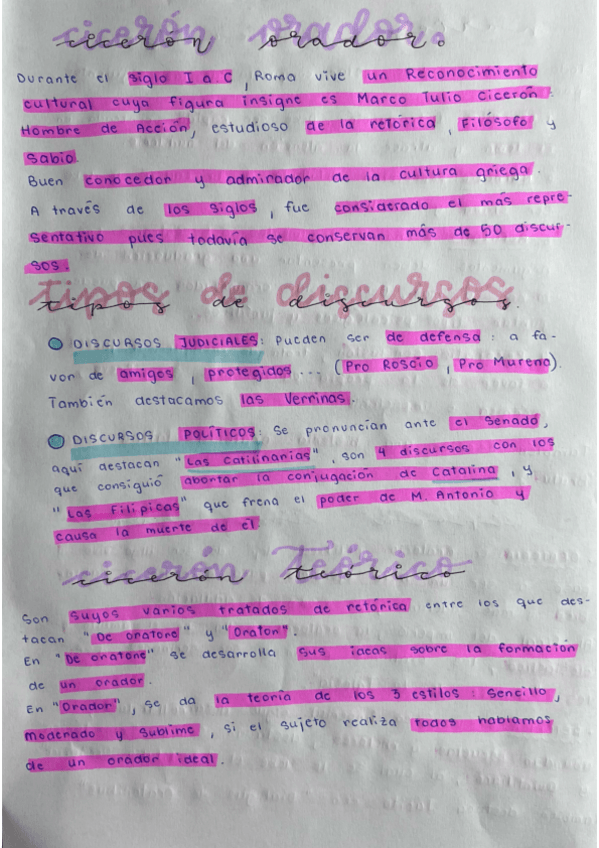 cicerón orador.
Durante el siglo I a.C, Roma vive un Reconocimiento
cultural cuya figura insigne es Marco Tulio Cicerón.
Hombre de Acción, estudioso de la retórica, Filósofo y
sabio.
Buen conocedor y admirador de la cultura griega.
A través de los siglos, fue considerado el más repre-
sentativo pues todavía se conservan más de 50 discur-
sos.
tipos de discursos.
DISCURSOS JUDICIALES: Pueden ser de defensa: a fa-
vor de amigos, protegidos... (Pro Roscio, Pro Murena).
También destacamos las Verrinas.
DISCURSOS POLÍTICOS: Se pronuncian ante el Senado,
aquí destacan "Las Catilinarias", son 4 discursos con los
que consiguió abortar la conjugación de Catalina, y
"Las Filípicas" que frena el poder de M. Antonio y
causa la muerte de el
cicerón teórico
Son suyos varios tratados de retórica entre los que des-
tacan "De oratore" y "Orator".
En "De oratore" se desarrolla sus ideas sobre la formación
de un orador.
En "Orador", se da la teoría de los 3 estilos: Sencillo,
moderado y sublime, si el sujeto realiza todos hablamos
de un orador ideal.